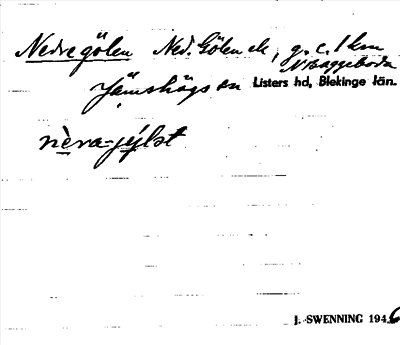 Nedregölen Ned. Gölen ek, g. c. 1 km
N Baggeboda
Jämshögs sn Listers hd, Blekinge län.
nèra-jýlst
J. SWENNING 1946